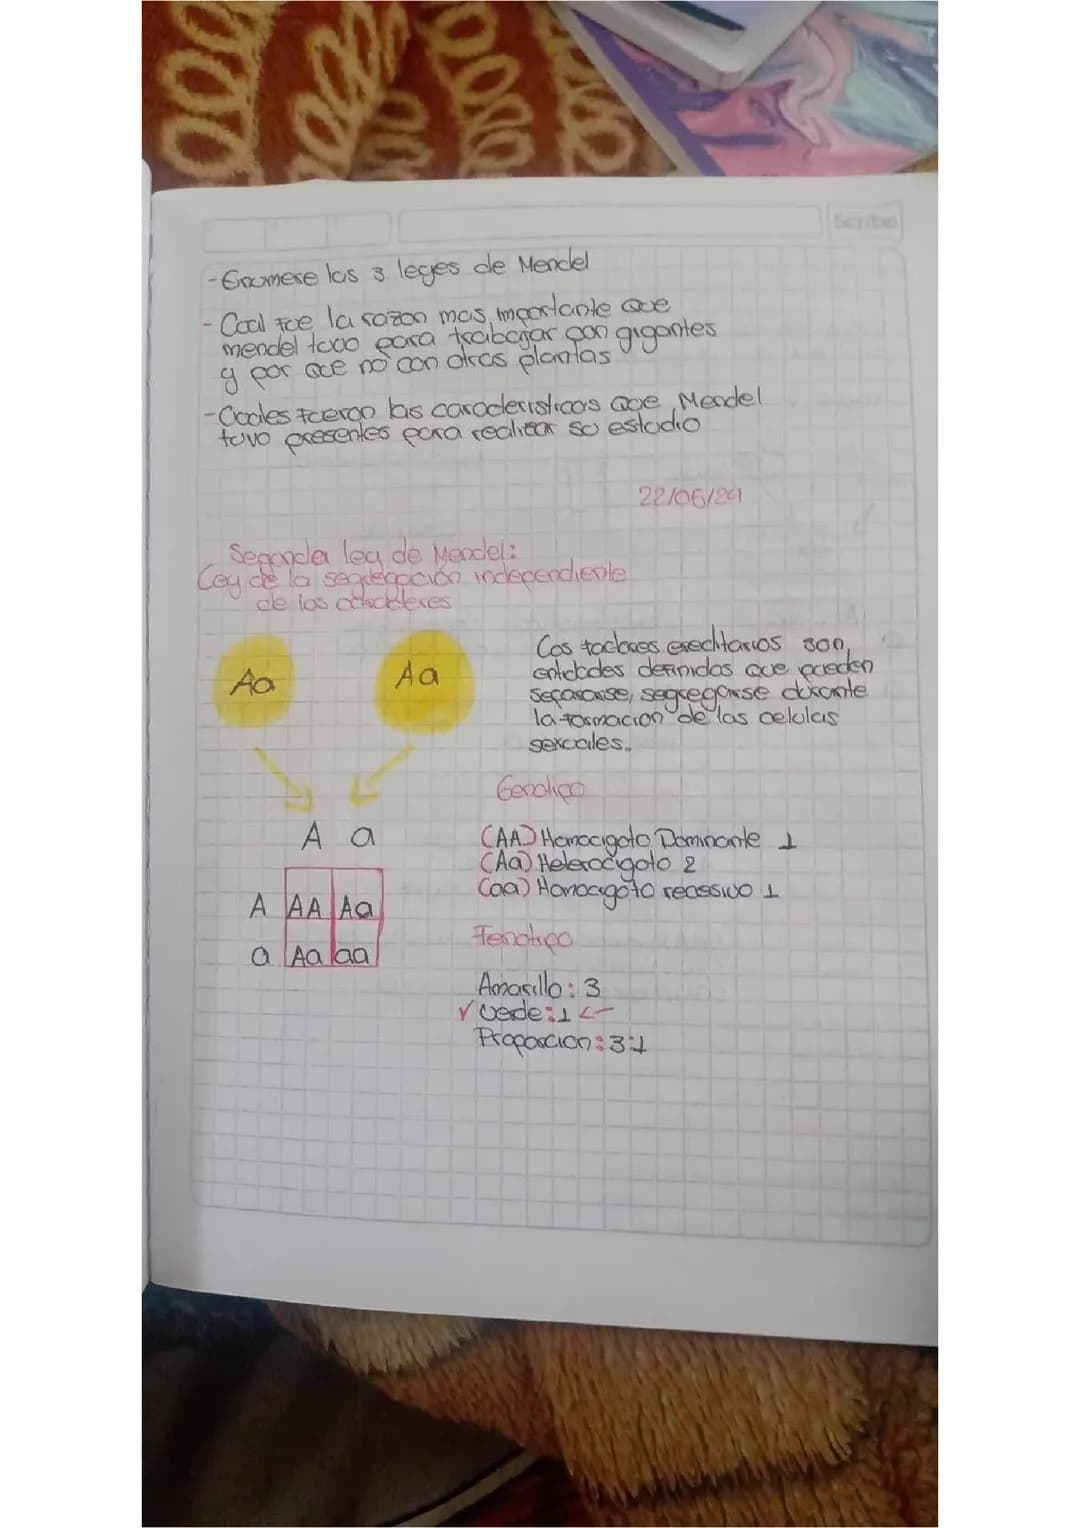 Scribe
-Enumere las 3 leyes de Mendel
- Cual fue la razon mas importante que
mendel tuvo para trabajar con gigantes
y por que no con otras plantas
-Cuales fueron las caracteristicas que Mendel
tuvo presentes para realizar su estudio
22/05/24
Segunda ley de Mendel:
Ley de la segregación independiente
de los caracteres
Aa Aa
Los factores ereditarios son,
entidades definidas que pueden
separarse, segregarse durante
la formacion de las celulas
sexuales.
Genotipo
A a
(AA) Homocigoto Dominante 1
(Aa) Heterocigoto 2
(aa) Homocigoto recessivo 1
A AA Aa
a Aa aa
Fenotipo
Amarillo: 3
✓ verde: 1 ←
Proporcion: 3:1